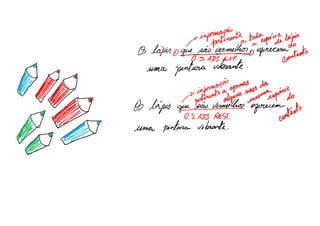 informação
pertinente a toda espécie de lápis
do contexto
Os lápis, que são vermelhos, aparecem
O.S.ADJ. EXP.
uma pintura vibrante.
informação
pertinente a apenas
alguns seres da
mesma espécie
do contexto
Os lápis que são vermelhos aparecem
O.S.ADJ. REST.
uma pintura vibrante.